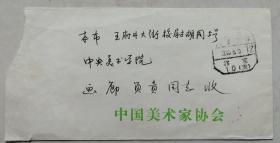 本市 王府井大街校尉胡同5号
中央美术学院
画廊负责同志 收
中国美术家协会
北京